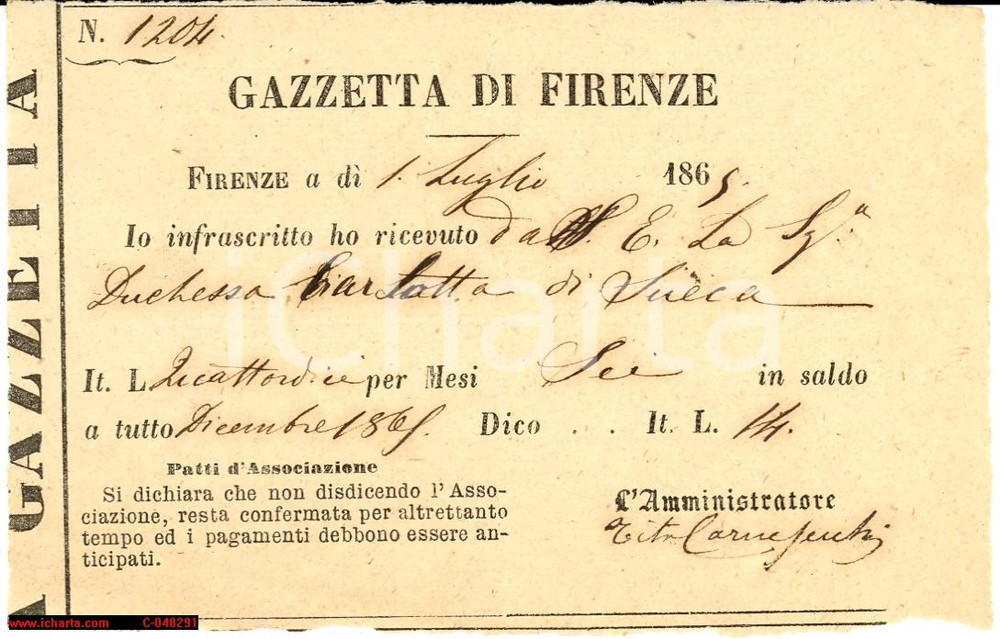 N. 1204.
GAZZETTA DI FIRENZE
FIRENZE a dì 1. Luglio 1865.
Io infrascritto ho ricevuto da S. E. La Sg.ª
Duchessa Carlotta di Sueca
It. L. Quattordici per Mesi Sei in saldo
a tutto Dicembre 1865. Dico . . It. L. 14.
Patti d'Associazione
Si dichiara che non disdicendo l'Asso-
ciazione, resta confermata per altrettanto
tempo ed i pagamenti debbono essere an-
ticipati.
L'Amministratore
Tito
A GAZZETTA
iCharta
www.icharta.com C-048291